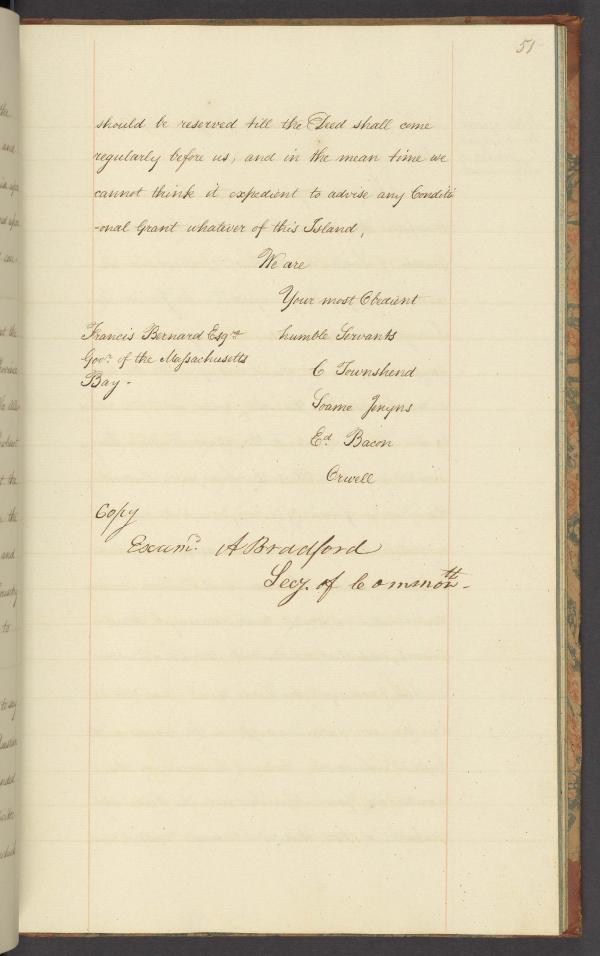 51
should be reserved till the Deed shall come
regularly before us, and in the mean time we
cannot think it expedient to advise any Conditi
-onal Grant whatever of this Island,
We are
Your most Obedient
humble Servants
Francis Bernard Esqre
Govr. of the Massachusetts
Bay -
C Townshend
Soame Jenyns
Ed. Bacon
Orwell
Copy
Examd. A Bradford
Secy. of Commonth -